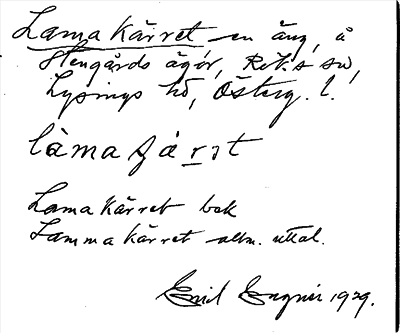 Lama Kärret en äng, å
Stengårds ägor, Rök:s sn,
Lysings hd, Österg. l.
làmaʒárɪt
Lama Kärret bok
Lamma Kärret alm. uttal.
Emil 1929.